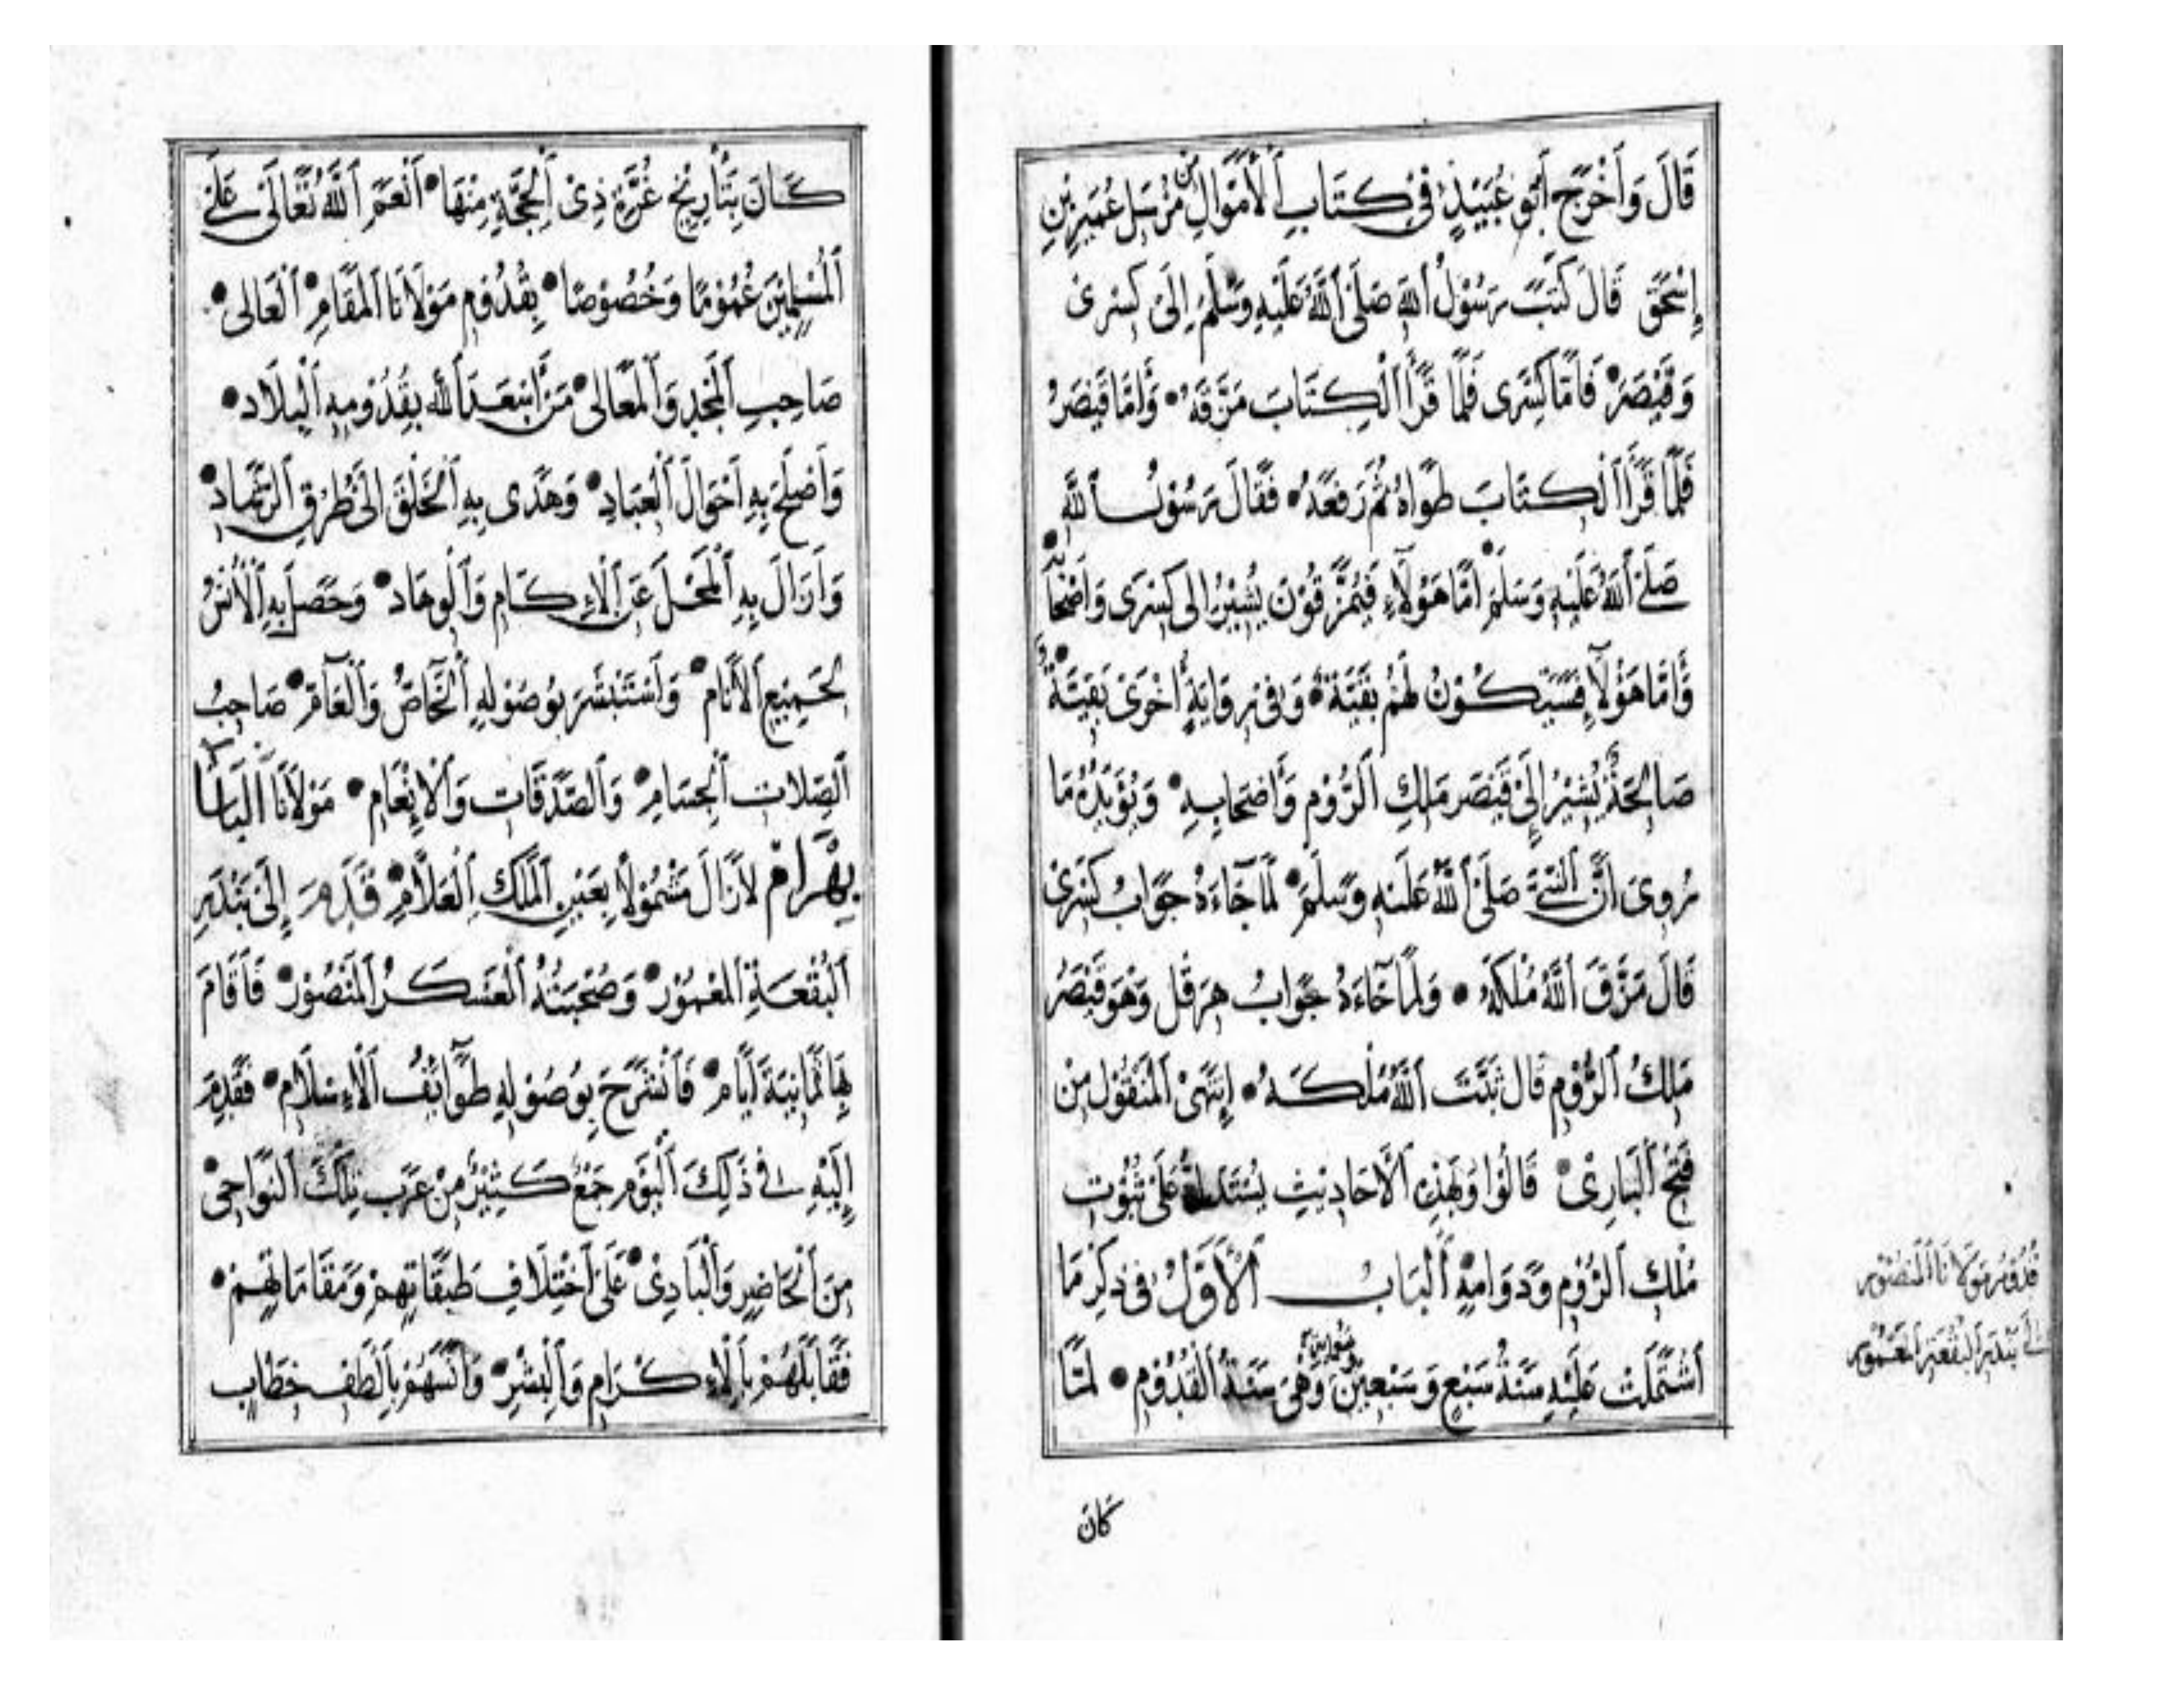 قَالَ وَأَخْرَجَ أَبُو عُبَيْدٍ فِي كِتَابِ الْأَمْوَالِ مِنْ مُرْسَلِ عُمَيْرِ بْنِ
إِسْحَقَ قَالَ كَتَبَ رَسُوْلُ اللهِ صَلَّى اللهُ عَلَيْهِ وَسَلَّمَ إِلَى كِسْرَى
وَقَيْصَرَ فَأَمَّا كِسْرَى فَلَمَّا قَرَأَ الْكِتَابَ مَزَّقَهُ وَأَمَّا قَيْصَرُ
فَلَمَّا قَرَأَ الْكِتَابَ طَوَاهُ ثُمَّ رَفَعَهُ فَقَالَ رَسُوْلُ اللهِ
صَلَّى اللهُ عَلَيْهِ وَسَلَّمَ أَمَّا هَؤُلَاءِ فَيُمَزَّقُوْنَ يُشِيْرُ إِلَى كِسْرَى وَأَصْحَابِهِ
وَأَمَّا هَؤُلَاءِ فَسَيَكُوْنُ لَهُمْ بَقِيَّةٌ وَفِي رِوَايَةٍ أُخْرَى بَقِيَّةٌ
صَالِحَةٌ يُشِيْرُ إِلَى قَيْصَرَ مَلِكِ الرُّوْمِ وَأَصْحَابِهِ وَيُؤَيِّدُهُ مَا
رُوِيَ أَنَّ النَّبِيَّ صَلَّى اللهُ عَلَيْهِ وَسَلَّمَ لَمَّا جَاءَهُ جَوَابُ كِسْرَى
قَالَ مَزَّقَ اللهُ مُلْكَهُ وَلَمَّا جَاءَهُ جَوَابُ هِرَقْلَ وَهُوَ قَيْصَرُ
مَلِكُ الرُّوْمِ قَالَ ثَبَّتَ اللهُ مُلْكَهُ إِنْتَهَى الْمَنْقُوْلُ مِنْ
فَتْحِ الْبَارِيْ قَالُوْا وَبِهَذِهِ الْأَحَادِيْثِ يُسْتَدَلُّ عَلَى ثُبُوْتِ
مُلْكِ الرُّوْمِ وَدَوَامِهِ الْبَابُ الْأَوَّلُ فِي ذِكْرِ مَا
اشْتَمَلَتْ عَلَيْهِ سَنَةُ سَبْعٍ وَسَبْعِيْنَ وَهِيَ سَنَةُ الْقُدُوْمِ لَمَّا
قُدُوْمُ مَوْلَانَا الْمَنْصُوْرِ
إِلَى بَنْدَرِ الْبُقْعَةِ الْمَعْمُوْرِ
كَانَ
كَانَ بِتَأْرِيْخِ غُرَّةِ ذِي الْحِجَّةِ مِنْهَا أَنْعَمَ اللهُ تَعَالَى عَلَى
الْمُسْلِمِيْنَ عُمُوْمًا وَخُصُوْصًا بِقُدُوْمِ مَوْلَانَا الْمَقَامِ الْعَالِى
صَاحِبِ الْمَجْدِ وَالْمَعَالِى مَنْ أَسْعَدَ اللهُ بِقُدُوْمِهِ الْبِلَاد
وَأَصْلَحَ بِهِ أَحْوَالَ الْعِبَادِ وَهَدَى بِهِ الْخَلْقَ إِلَى طُرُقِ الرَّشَاد
وَأَزَالَ بِهِ الْمَحْلَ عَنِ الْإِكَامِ وَالْوِهَاد وَحَصَلَ بِهِ الْأُنْسُ
لِجَمِيْعِ الْأَنَام وَاسْتَبْشَرَ بِوُصُوْلِهِ الْخَاصُّ وَالْعَامّ صَاحِبُ
الصِّلَاتِ الْجِسَامِ وَالصَّدَقَاتِ وَالْإِنْعَامِ مَوْلَانَا الْبَاشَا
بِهْرَامْ لَازَالَ مَشْمُوْلًا بِعَيْنِ الْمَلِكِ الْعَلَّامِ قَدِمَ إِلَى بَنْدَرِ
الْبُقْعَةِ الْمَعْمُوْرْ وَصُحْبَتُهُ الْعَسْكَرُ الْمَنْصُوْرْ فَأَقَامَ
بِهَا ثَمَانِيَةَ أَيَّامْ فَانْشَرَحَ بِوُصُوْلِهِ طَوَائِفُ الْإِسْلَامْ فَقَدِمَ
إِلَيْهِ فِي ذَلِكَ الْيَوْمِ جَمْعٌ كَثِيْرٌ مِنْ عَرَبِ تِلْكَ النَّوَاحِي
مِنَ الْحَاضِرِ وَالْبَادِيْ عَلَى اخْتِلَافِ طَبَقَاتِهِمْ وَمَقَامَاتِهِمْ
فَقَابَلَهُمْ بِالْإِكْرَامِ وَالْبِشْرِ وَآنَسَهُمْ بِأَلْطَفِ خِطَابٍ